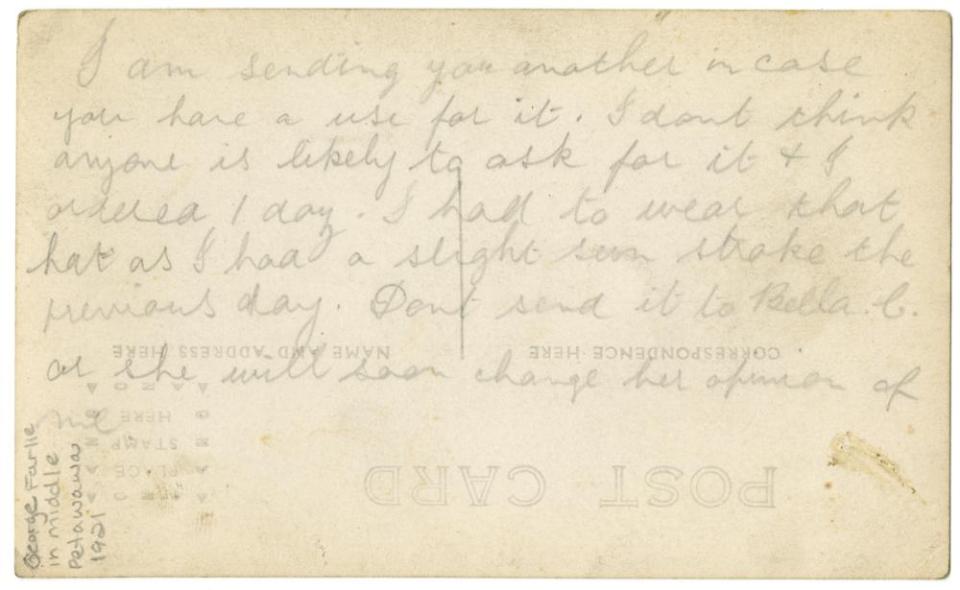 I am sending you another in case
you have a use for it. I dont think
anyone is likely to ask for it & I
ordered 1 doz. I had to wear that
hat as I had a slight sun stroke the
previous day. Dont send it to Bella. C.
or she will soon change her opinion of
me
CORRESPONDENCE HERE
NAME AND ADDRESS HERE
POST CARD
PLACE
STAMP
HERE
George Farlie
in middle
Petawawa
1921